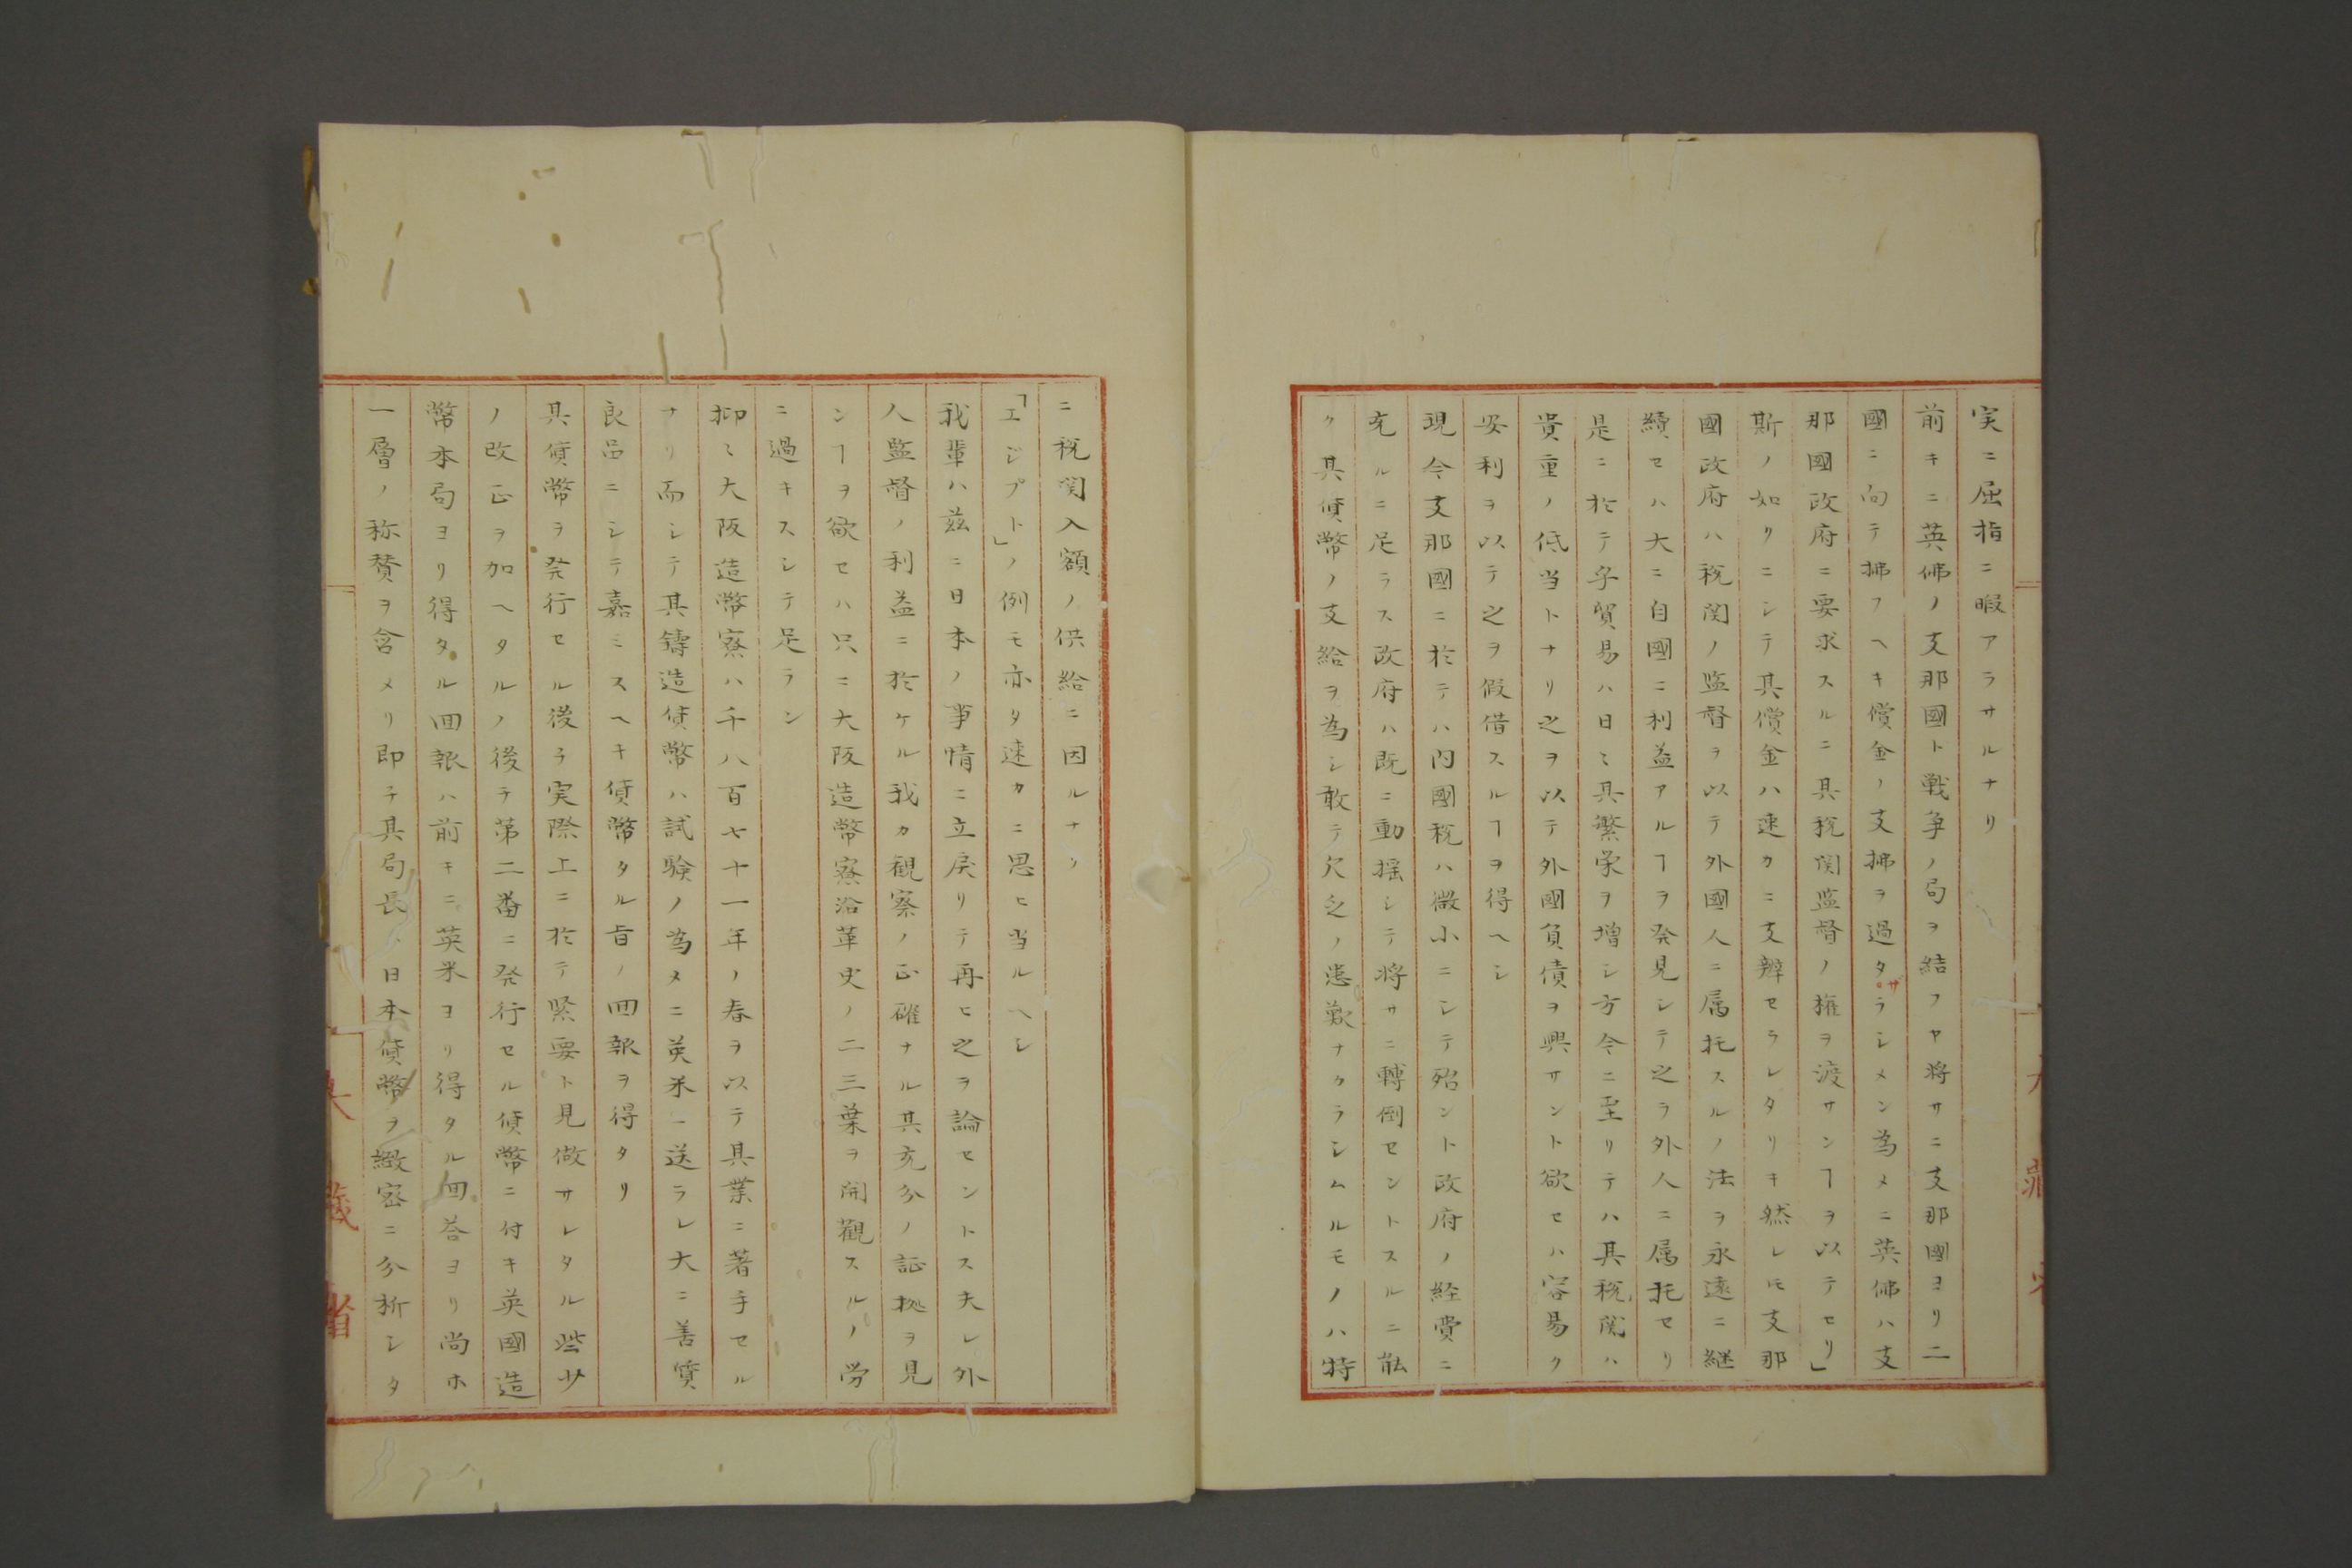 実ニ屈指ニ暇アラサルナリ
前キニ英佛ノ支那國ト戦争ノ局ヲ結フヤ将サニ支那國ヨリ二
國ニ向テ拂フヘキ償金ノ支拂ヲ過タサラシメン為メニ英佛ハ支
那國政府ニ要求スルニ其税関監督ノ権ヲ渡サンヿヲ以テセリ」
斯ノ如クニシテ其償金ハ速カニ支辨セラレタリキ然レ𪜈支那
國政府ハ税関ノ監督ヲ以テ外國人ニ属托スルノ法ヲ永遠ニ継
續セハ大ニ自國ニ利益アルヿヲ発見シテ之ヲ外人ニ属托セリ
是ニ於テ乎貿易ハ日ミ其繁栄ヲ増シ方今ニ至リテハ其税関ハ
貴重ノ低当トナリ之ヲ以テ外國負債ヲ興サント欲セハ容易ク
安利ヲ以テ之ヲ假借スルヿヲ得ヘシ
現今支那國ニ於テハ内國税ハ微小ニシテ殆ント政府ノ経費ニ
充ルニ足ラス政府ハ既ニ動揺シテ将サニ轉倒セントスルニ能
ク其貨幣ノ支給ヲ為シ敢テ欠乏ノ患歎ナカラシムルモノハ特
ニ税関入額ノ供給ニ因ルナリ
「エジプト」ノ例モ亦タ速カニ思ヒ当ルヘシ
我輩ハ茲ニ日本ノ事情ニ立戻リテ再ヒ之ヲ論セントス夫レ外
人監督ノ利益ニ於ケル我カ観察ノ正確ナル其充分ノ証拠ヲ見
ンヿヲ欲セハ只ニ大阪造幣寮沿革史ノ二三葉ヲ開觀スルノ労
ニ過キスシテ足ラン
抑ミ大阪造幣寮ハ千八百七十一年ノ春ヲ以テ其業ニ著手セル
ナリ而シテ其鋳造貨幣ハ試験ノ為メニ英米ニ送ラレ大ニ善質
良品ニシテ嘉ミスヘキ貨幣タル旨ノ回報ヲ得タリ
其貨幣ヲ発行セル後チ実際上ニ於テ緊要ト見做サレタル些少
ノ改正ヲ加ヘタルノ後テ第二番ニ発行セル貨幣ニ付キ英國造
幣本局ヨリ得タル回報ハ前キニ英米ヨリ得タル回答ヨリ尚ホ
一層ノ称賛ヲ含メリ即チ其局長ハ日本貨幣ヲ緻密ニ分析シタ